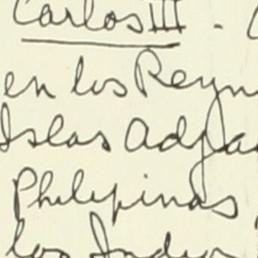 Carlos III -
en los Reyn
Islas Adja
Philipinas,
los Indias